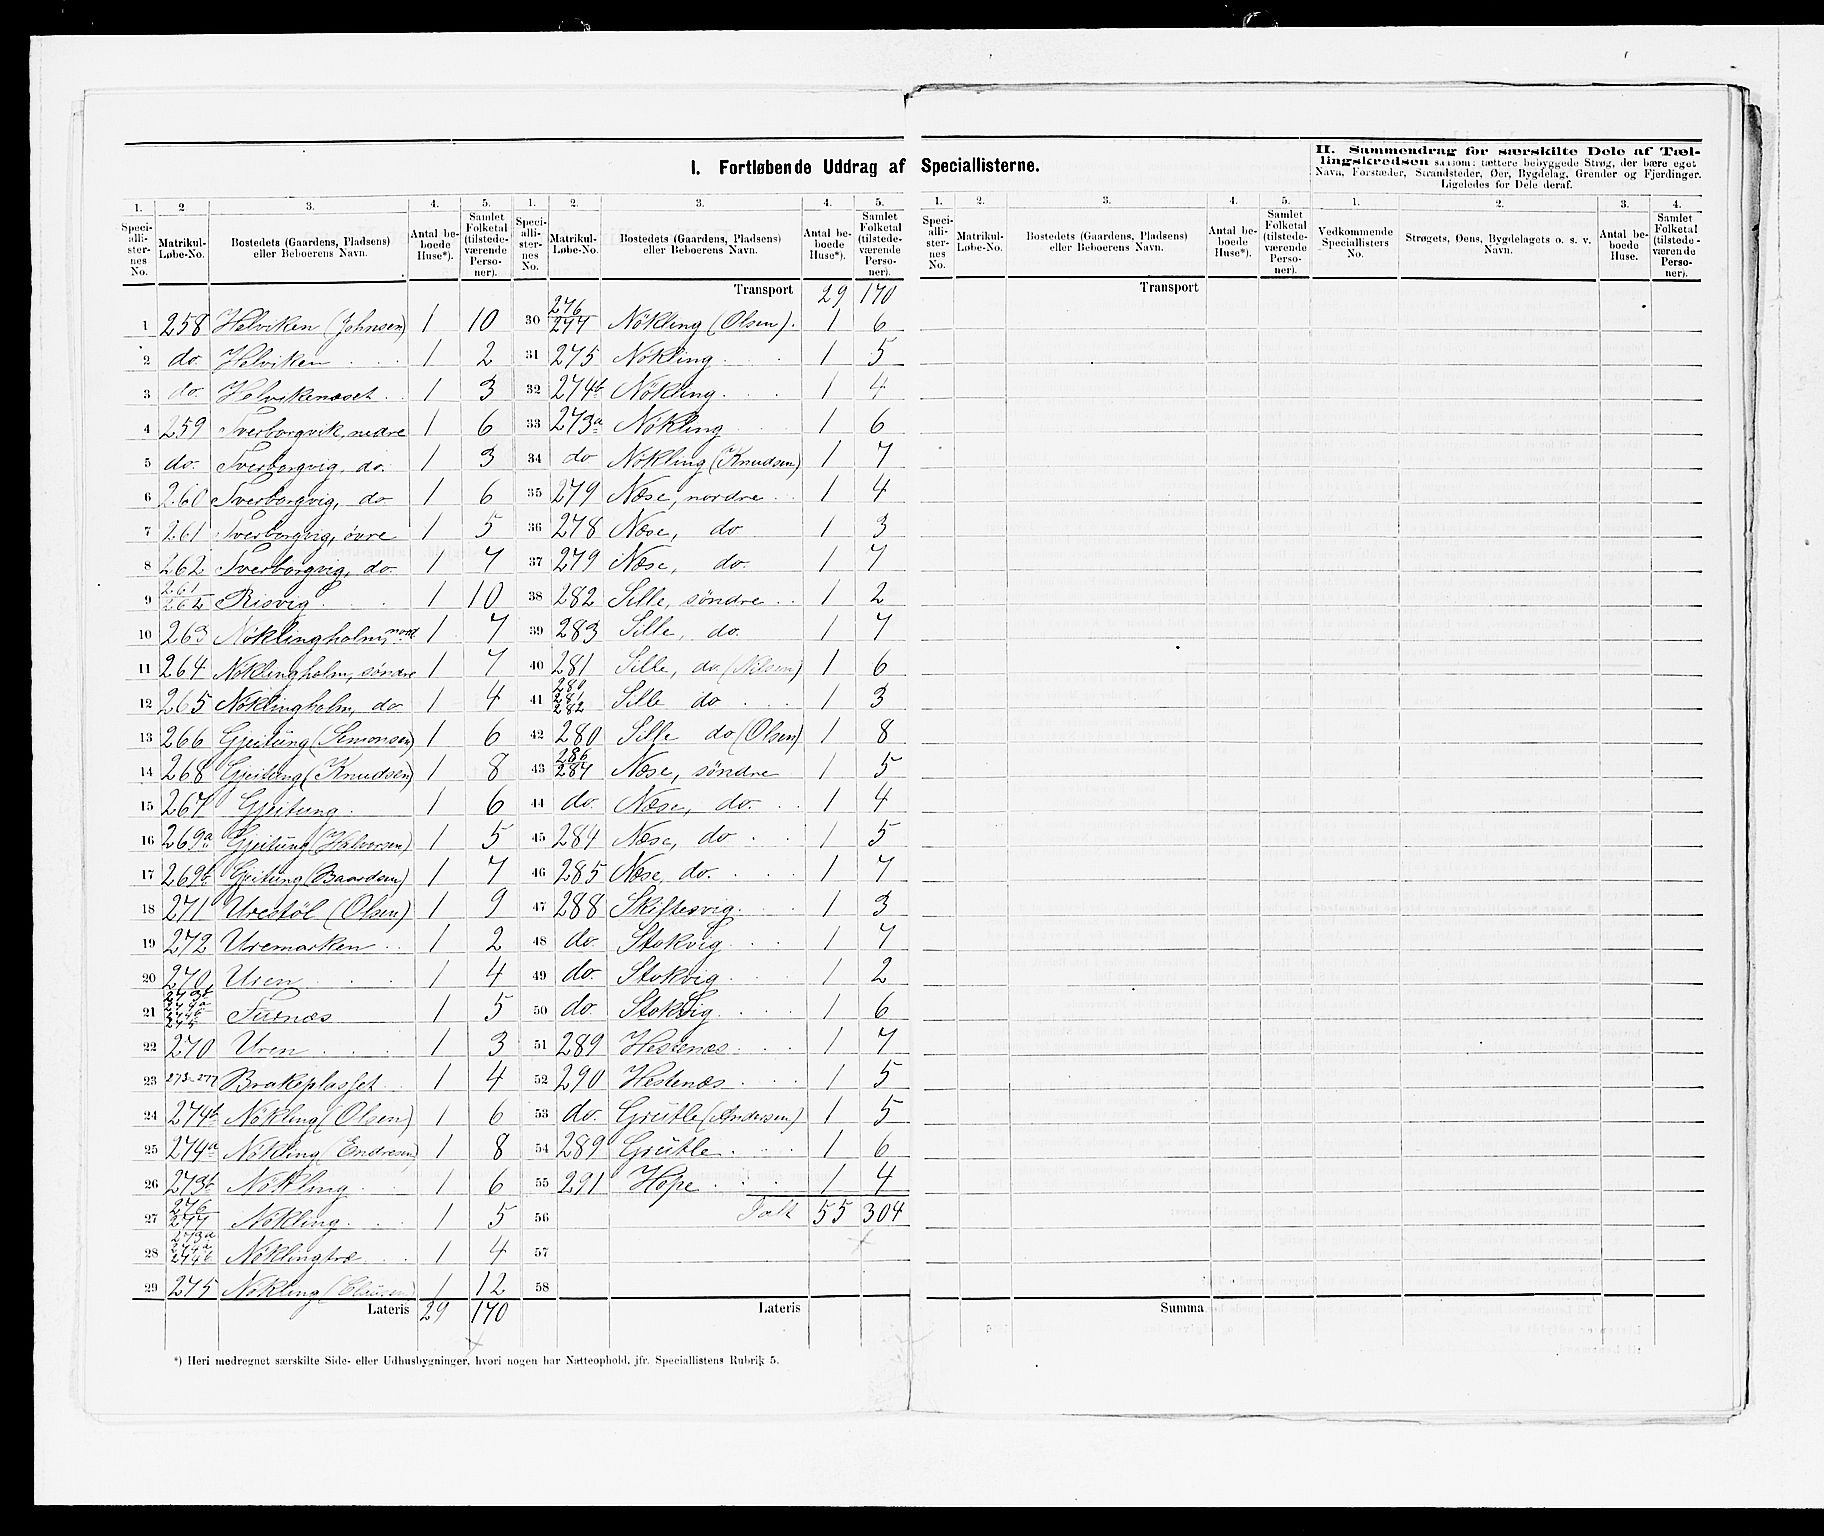 I. Fortløbende Uddrag af Speciallisterne.
II. Sammendrag for særskilte Dele af Tæl-
lingskredsen saasom: tættere bebyggede Strøg, der bære eget
Navn, Forstæder, Strandsteder, Øer, Bygdelag, Grender og Fjerdinger.
Ligeledes for Dele deraf.
1. 2 3. 4. 5. 1. 2. 3. 4. 5. 1. 2. 3. 4. 5. 1. 2. 3. 4.
Speci-alli-ster-nes No. Matrikul-Løbe-No. Bostedets (Gaardens, Pladsens) eller Beboerens Navn. Antal be-boede Huse*). Samlet Folketal (tilstede-værende Perso-ner).
Speci-alli-ster-nes No. Matrikul-Løbe-No. Bostedets (Gaardens, Pladsens) eller Beboerens Navn. Antal be-boede Huse*). Samlet Folketal (tilstede-værende Perso-ner).
Speci-alli-ster-nes No. Matrikul-Løbe-No. Bostedets (Gaardens, Pladsens) eller Beboerens Navn. Antal be-boede Huse*). Samlet Folketal (tilstede-værende Perso-ner).
Vedkommende Speciallisters No. Strøgets, Øens, Bygdelagets o. s. v. Navn. Antal be-boede Huse. Samlet Folketal (tilstede-værende Perso-ner).
1 258 Helviken (Johnsen) 1 10
2 do. Helviken 1 2
3 do. Helvikenæset 1 3
4 259 Tverborgvik, nedre 1 6
5 do. Tverborgvig, do. 1 3
6 260 Tverborgvig, do 1 6
7 261 Tverborgvig, övre 1 5
8 262 Tverborgvig, do. 1 7
9 261 262 Risvig 1 10
10 263 Nöklingholm, nord 1 7
11 264 Nöklingholm, søndre 1 7
12 265 Nöklingholm, do. 1 4
13 266 Gjeitung (Simonsen) 1 6
14 268 Gjeitung (Knudsen) 1 8
15 267 Gjeitung 1 6
16 269a Gjeitung (Halvorsen) 1 5
17 269b Gjeitung (Baardsen) 1 7
18 271 Urestöl (Olsen) 1 9
19 272 Uremarken 1 2
20 270 Uren 1 4
21 273b 274a 274b 275 Furnæs 1 5
22 270 Uren 1 3
23 273-277 Brakeplasset 1 4
24 274b Nökling (Olsen) 1 6
25 274a Nökling (Endresen) 1 8
26 273b Nökling 1 6
27 276 277 Nökling 1 5
28 273a 274a 274b Nöklingtræ 1 4
29 275 Nökling (Clausen) 1 12
Lateris 29 170
Transport 29 170
30 276 277 Nökling (Olsen) 1 6
31 275 Nökling 1 5
32 274b Nökling 1 4
33 273a Nökling 1 6
34 do Nökling (Knudsen) 1 7
35 279 Næse, nordre 1 4
36 278 Næse, do 1 3
37 279 Næse, do. 1 7
38 282 Sille, söndre 1 2
39 283 Sille, do. 1 7
40 281 Sille, do. (Nilsen) 1 6
41 280 281 282 Sille do 1 3
42 280 Sille do (Olsen) 1 8
43 286 287 Næse, söndre 1 5
44 do. Næse, do. 1 4
45 284 Næse, do 1 5
46 285 Næse, do. 1 7
47 288 Skiftesvig 1 3
48 do. Stokvig 1 7
49 do. Stokvig 1 2
50 do. Stokvig 1 6
51 289 Hestenæs 1 7
52 290 Hestenæs 1 5
53 do. Grütle (Andersen) 1 5
54 289 Grütle 1 6
55 291 Hope 1 4
56 Ialt 55 304
57
58
Lateris
Transport
Summa
*) Heri medregnet særskilte Side- eller Udhusbygninger, hvori nogen har Natteophold, jfr. Speciallistens Rubrik 5.